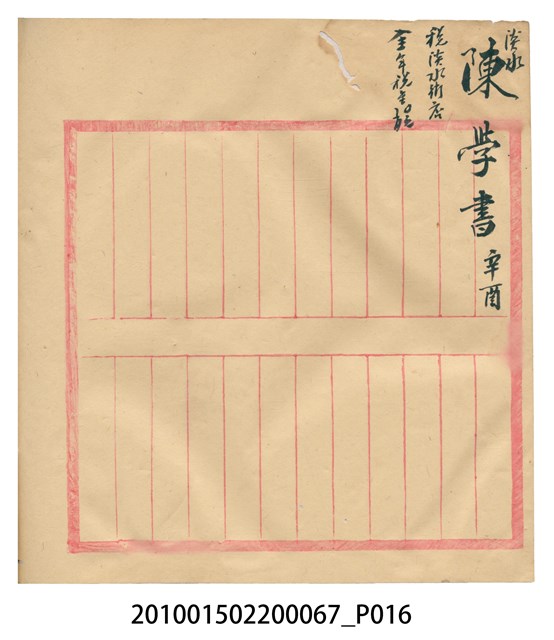 淡水
陳學書 辛酉
稅淡水街店
全年稅
201001502200067_P016